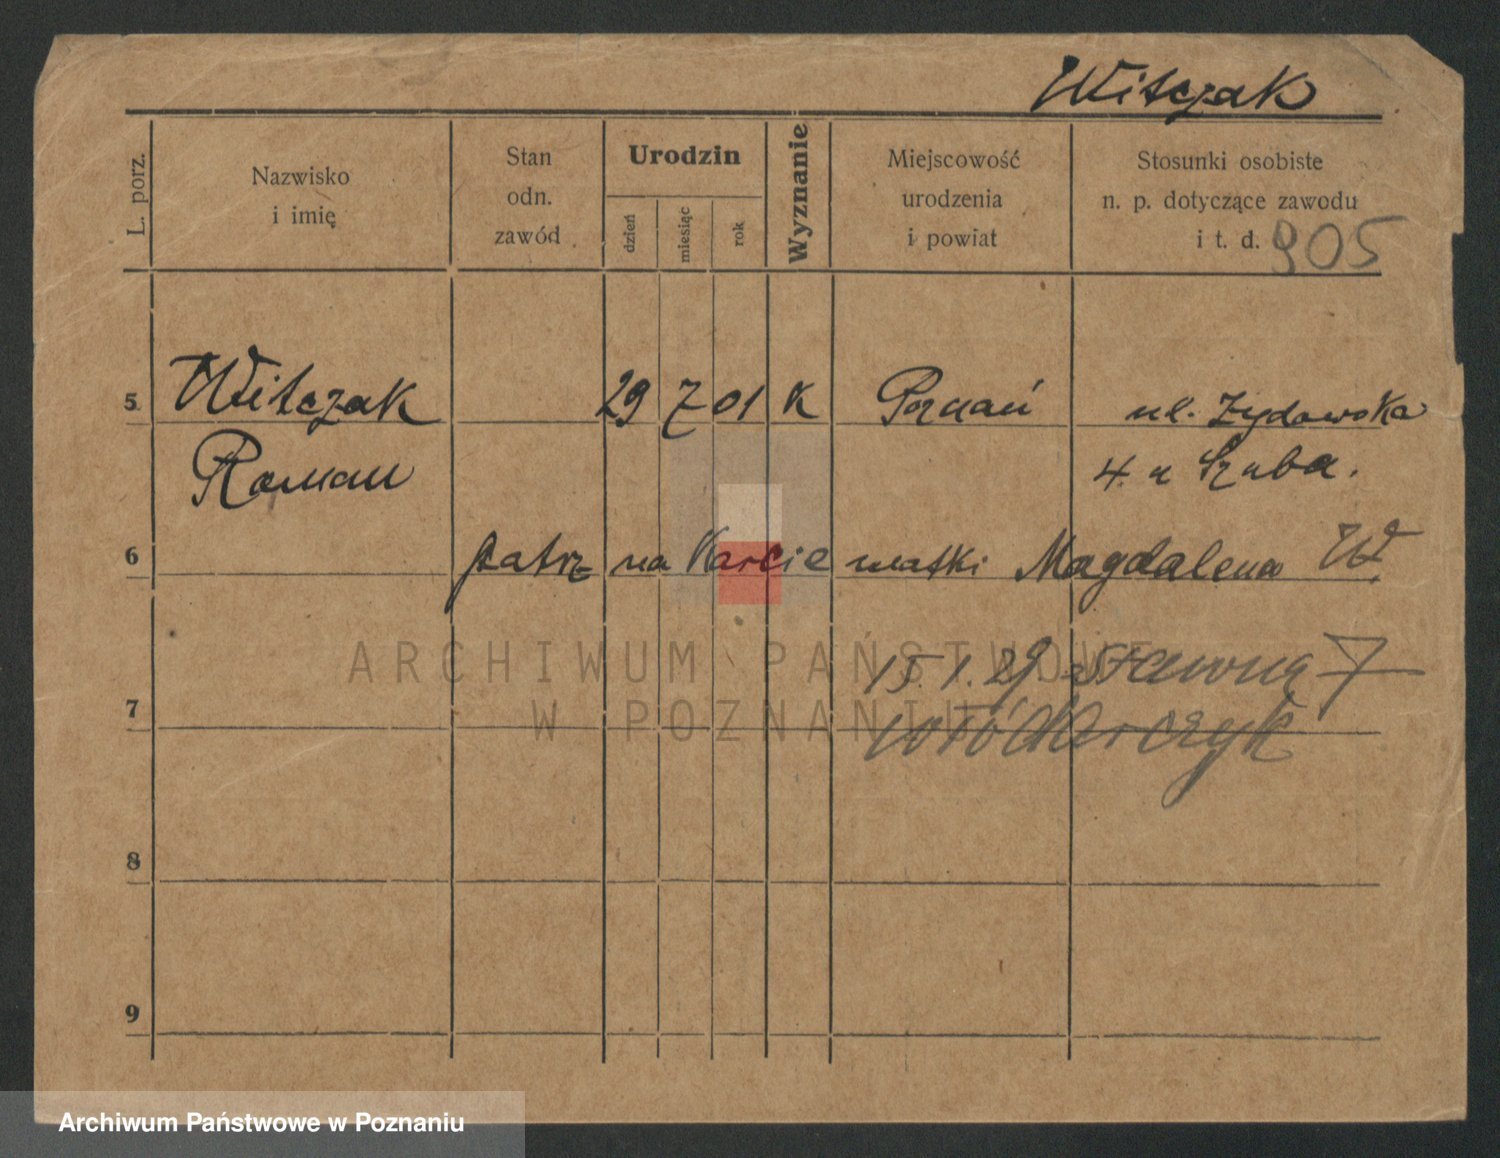 Witczak
L. porz.
Nazwisko
i imię
Stan
odn.
zawód
Urodzin
dzień
miesiąc
rok
Wyznanie
Miejscowość
urodzenia
i powiat
Stosunki osobiste
n. p. dotyczące zawodu
i t. d. 905
5 Witczak 29 7 01 K Poznań ul. Żydowska
Roman 4. u Szuba.
6 patrz na Karcie matki Magdalena W.
15. 1. 29 Stawna 7
7
8
9
ARCHIWUM PAŃSTWOWE
W POZNANIU
Archiwum Państwowe w Poznaniu